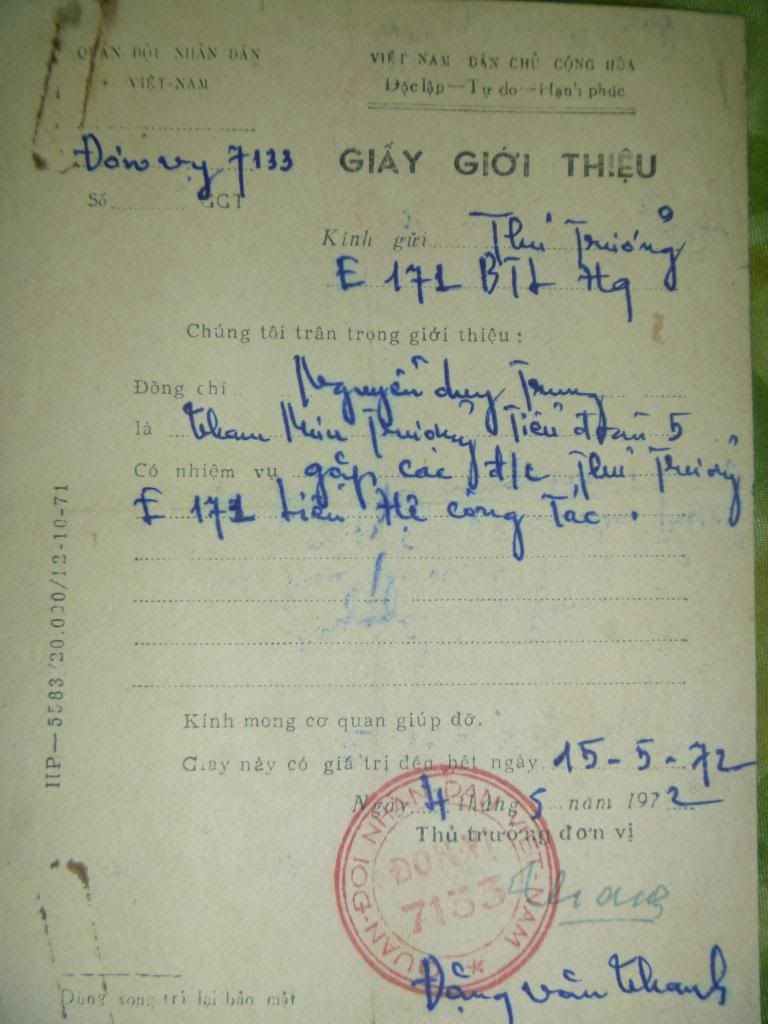 QUÂN ĐỘI NHÂN DÂN
VIỆT-NAM
VIỆT NAM DÂN CHỦ CỘNG HÒA
Độc lập — Tự do — Hạnh phúc
Đơn vị 7133
GIẤY GIỚI THIỆU
Số GGT
Kính gửi Thủ Trưởng
E 171 BTL Hq
Chúng tôi trân trọng giới thiệu :
Đồng chí Nguyễn duy Trung
là tham Mưu Trưởng Tiểu đoàn 5
Có nhiệm vụ gặp các đ/c Thủ Trưởng
E 171 Liên Hệ công Tác .
Kính mong cơ quan giúp đỡ.
Giấy này có giá trị đến hết ngày 15-5-72
Ngày 4 tháng 5 năm 1972
Thủ trưởng đơn vị
QUÂN-ĐỘI NHÂN-DÂN VIỆT-NAM
ĐƠN-VỊ
7133
Thanh
Đặng văn thanh
Dùng xong trả lại bảo mật
5583/20.000/12-10-71